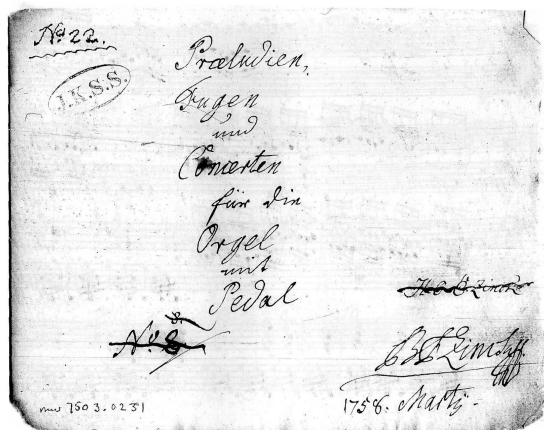 No. 22.
J.K.S.S.
Præludien,
Fugen
und
Concerten
für die
Orgel
mit
Pedal
No. 8
1758. Martÿ.
mu 7503.0231